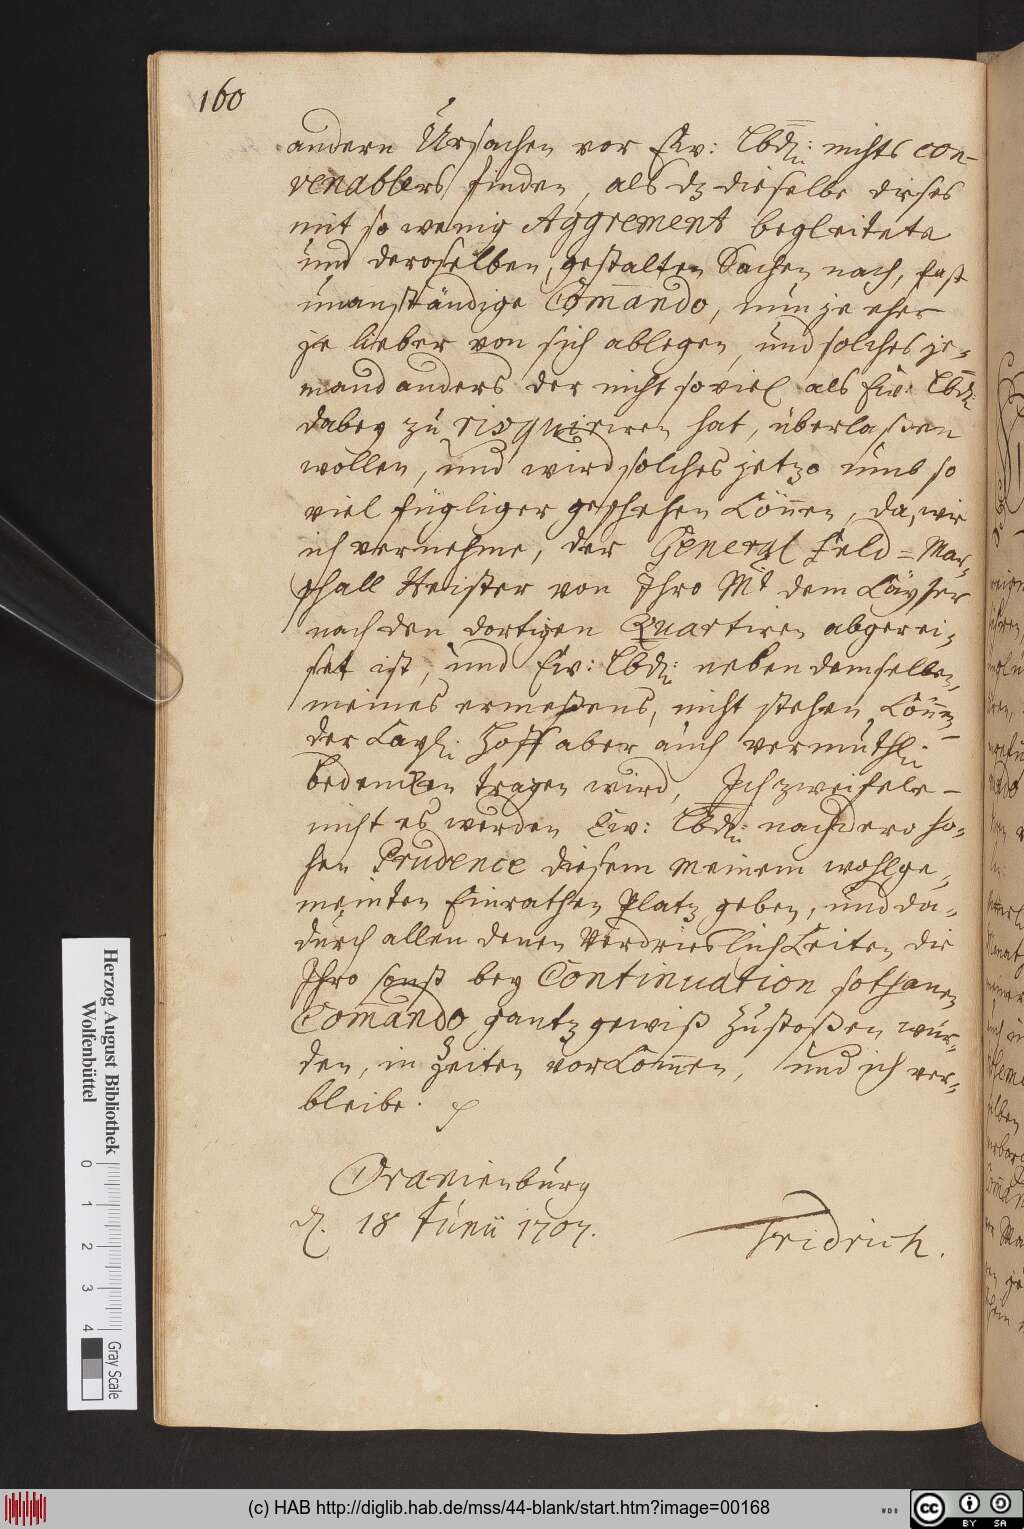 160
andern Ursachen vor Ew: Lbdn: nichts con-
venablers finden, als dz dieselbe dieses
mit so wenig Aggrement begleitete
und deroselben, gestalten Sachen nach, fast
unanständige Comando, nun je eher
je lieber von sich ablegen, und solches je-
mand anders der nicht so viel als Ew: Lbdn:
dabey zu risquiriren hat, überlaßen
wollen, und wird solches jetzo umb so
viel fügliger geschehen können, da, wie
ich vernehme, der General Feld=Mar-
schall Heister von Ihro Mt dem Käyser
nach den dortigen Quartiren abgerei-
set ist, und Ew: Lbdn: neben demselben,
meines ermeßens, nicht stehen können
der Kayl: Hoff aber auch vermuthl:
bedencken tragen wird, Ich zweifele
nicht es werden Ew: Lbdn: nach dero ho-
hen Prudence diesem meinem wohlge-
meinten Einrathen Platz geben, und da-
durch allen denen Verdrieslichkeiten, die
Ihro sonst bey Continuation sothanen
Comando gantz gewiß zustoßen wür-
den, in Zeiten vorkommen, und ich ver-
bleibe.
Oranienburg
d. 18 Junii 1707.
Fridrich.
Herzog August Bibliothek
Wolfenbüttel
0 1 2 3 4
Gray Scale
(c) HAB http://diglib.hab.de/mss/44-blank/start.htm?image=00168
WDB
cc BY SA